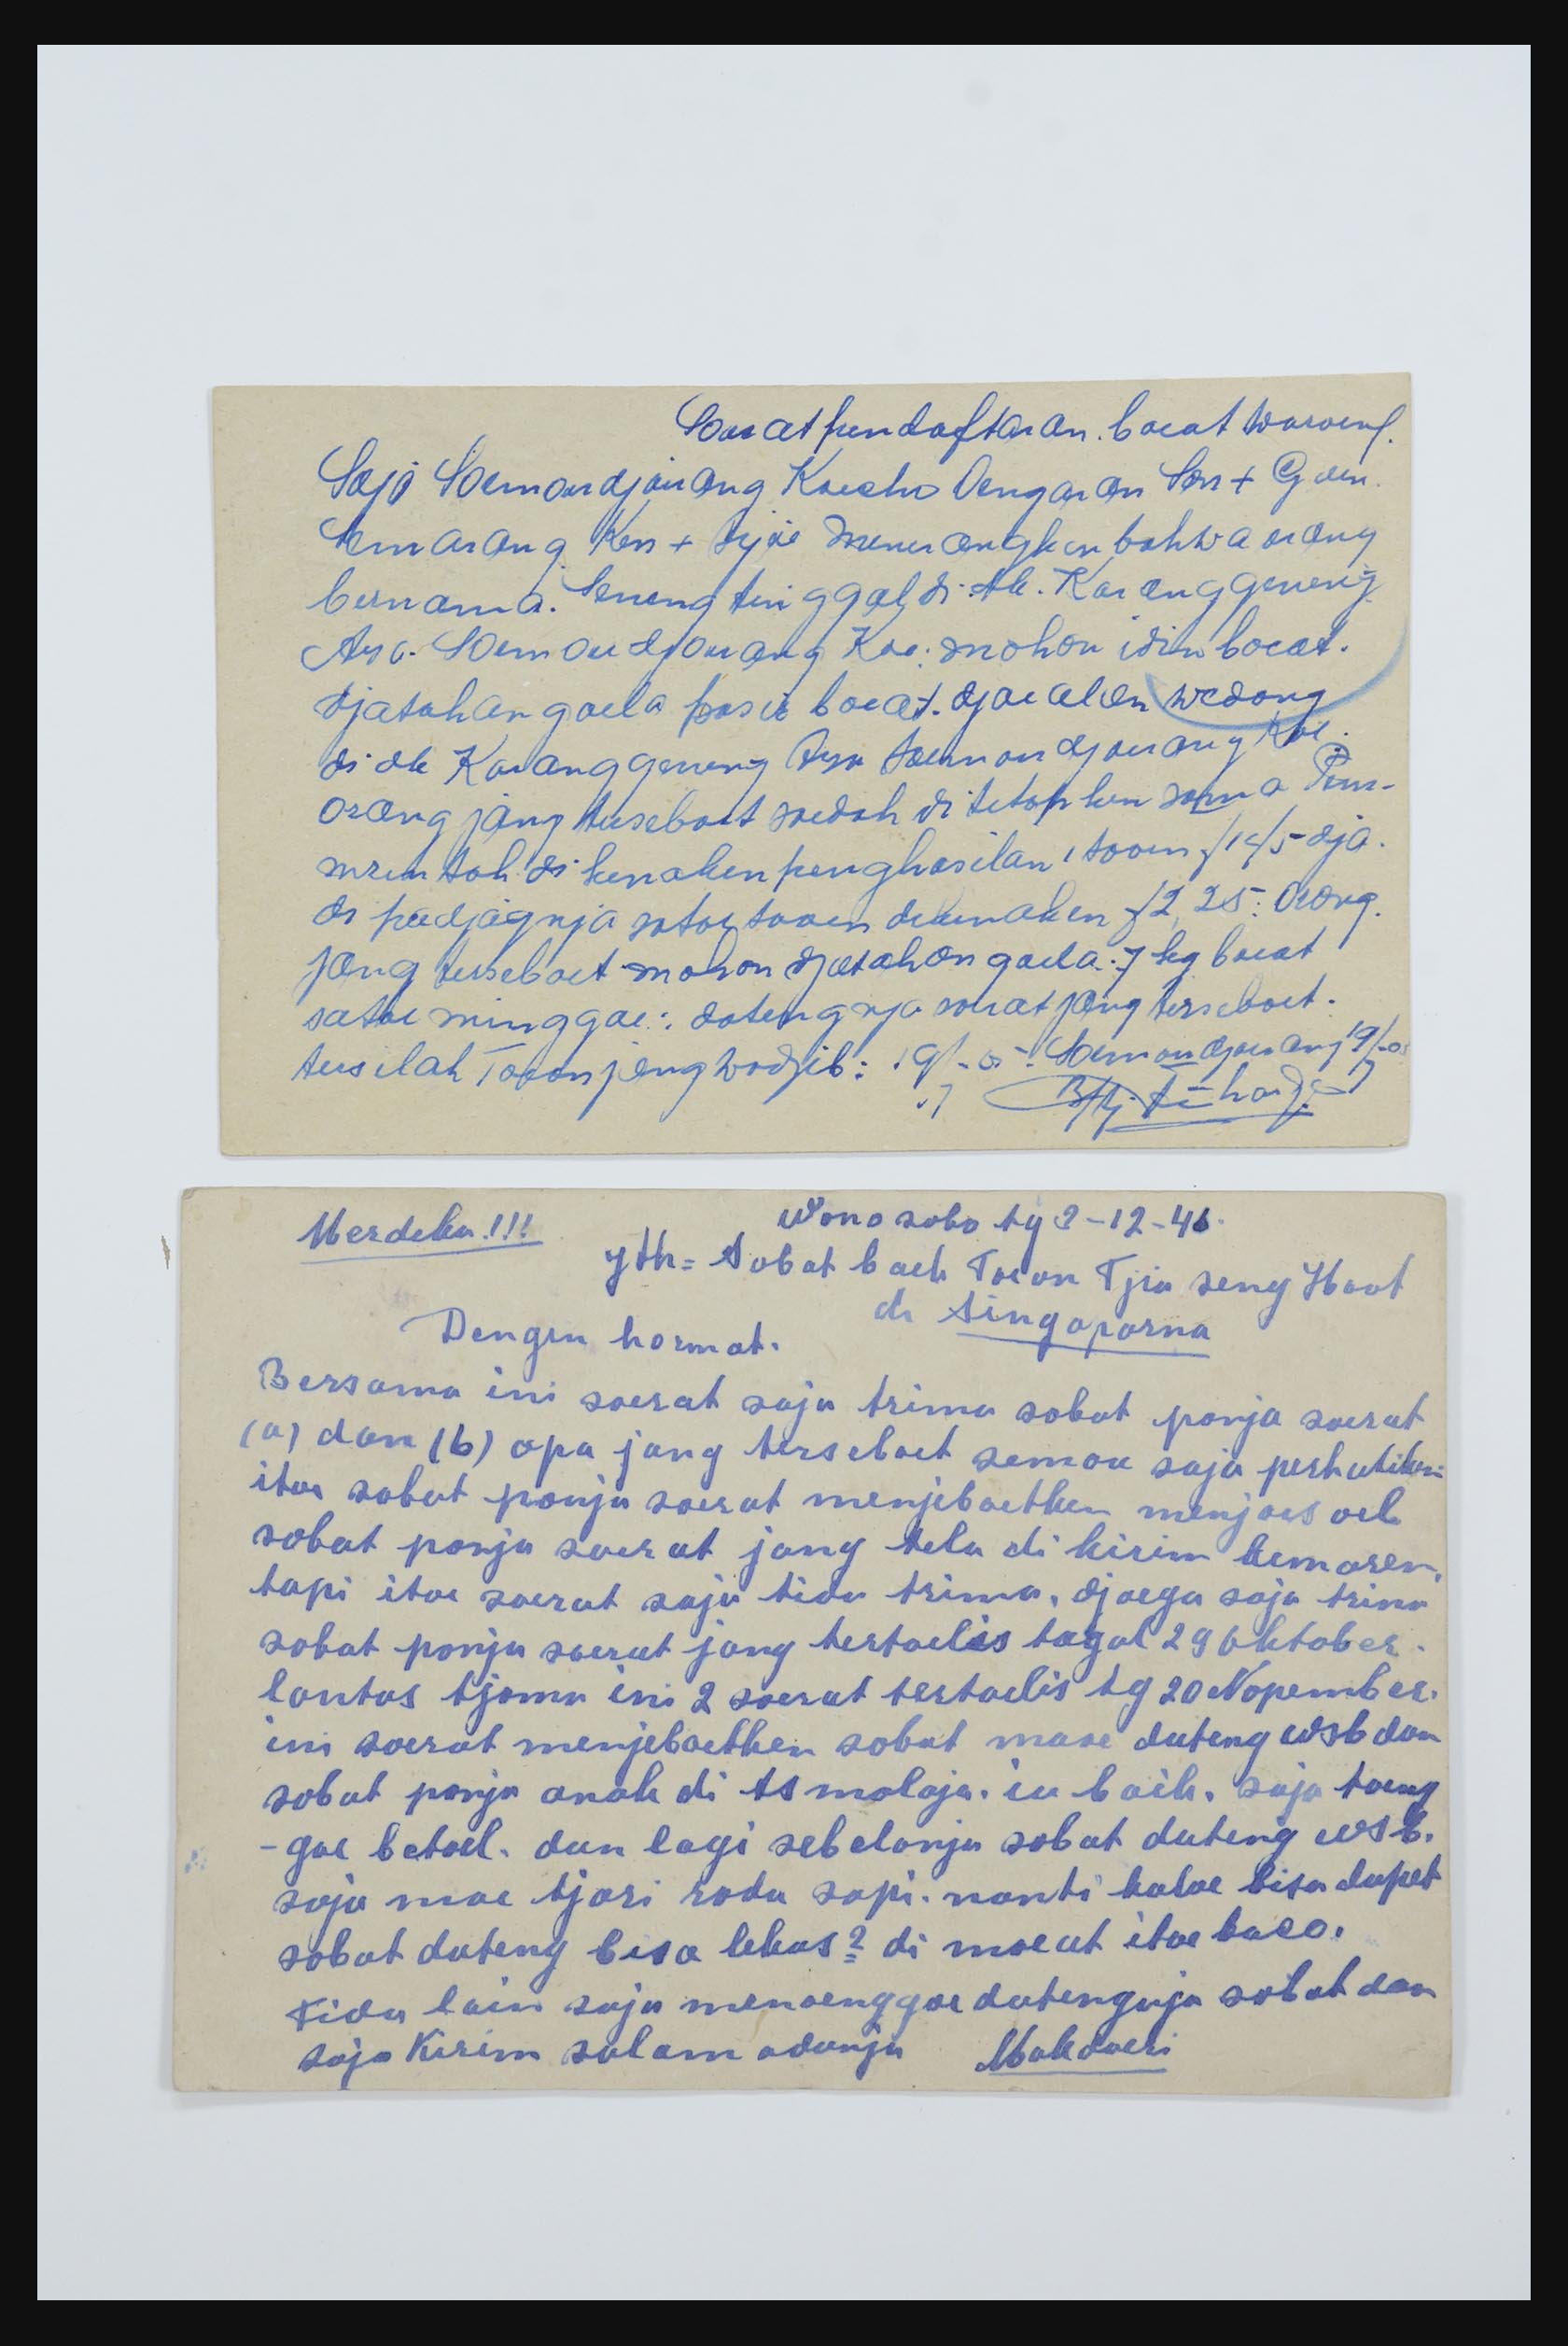 Soerat pendaftaran. boeat waroeng.
Saja Soemoerdjoerang Koecho Oengaran Son + Goen.
Semarang. Ken + Sjoe menerangken bahwa orang
bernama. Seneng tinggal di dk. Karanggeneng
Aza. Soemoerdjoerang Koe: mohon idin boeat.
djatahan goela pasir boeat. djoealan wedang
di dk Karanggeneng Aza Soemoerdjoerang Koe.
Orang jang terseboet soedah di tetapken sama Pem-
mrentah di kenaken penghasilan 1 taoen f 145 dja.
di padjagnja satoe taoen dikenaken f 2,25: Orang.
jang terseboet mohon djatahan goela: 7 kg boeat
satoe minggoe: datengnja soerat jang terseboet.
terselah Toean jang wadjib: 19/-05 Soemoerdjoerang 19/-05
7 7
Merdeka!!!
Wonosobo tg 2-12-46.
yth = Sobat baek Toean Tjia Seng Hoat
di Singaparna
Dengen hormat.
Bersama ini soerat saja trima sobat ponja soerat
(a) dan (b) apa jang terseboet semoa saja perhatiken
itoe sobat ponja soerat menjeboetken menjoesoel
sobat ponja soerat jang tela di kirim kemaren,
tapi itoe soerat saja tida trima, djoega saja trima
sobat ponja soerat jang tertoelis tagal 29 Oktober.
lantas tjoma ini 2 soerat tertoelis tg 20 Nopember.
ini soerat menjeboetken sobat maoe dateng wsb dan
sobat ponja anak di tsmalaja. ia baik. saja toeng
-goe betoel. dan lagi sebelonja sobat dateng wsb.
saja maoe tjari roda sapi. nanti kaloe bisa dapet
sobat dateng bisa lekas? di moeat itoe baco.
Tida lain saja menoenggoe datengnja sobat dan
saja Kirim salam adanja Makdoeri